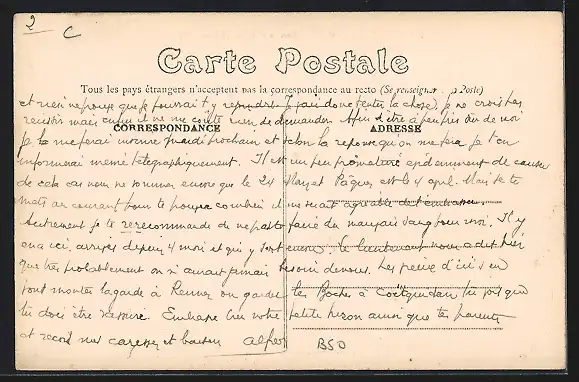 2 C
Carte Postale
Tous les pays étrangers n'acceptent pas la correspondance au recto (Se renseigner Poste)
et rien ne pouvoir que je pourrai t'y rejoindre. Je vais donc tenter la chose, je ne crois pas
réussir mais enfin il ne me coûte rien de demander. Afin d'être à peu près sûr de moi
CORRESPONDANCE ADRESSE
je la mardi prochain et selon la réponse qu'on me fera je t'en
informerai même télégraphiquement. Il est un peu prématuré de causer
de cela car nous ne sommes encore que le 24 Mars et Pâques est le 4 avril. Mais je te
mets au courant pour te combien il me serait agréable de t'embrasser.
Autrement je te recommande de ne pas te faire du mauvais sang pour moi. Il y
en a ici, arrivés depuis 4 mois et qui y sont encore. Le lieutenant nous a dit hier
que très probablement on n'aurait jamais besoin de nous. Les d'ici s'en
vont monter la garde à Rennes ou garder les Boches à Coëtquidan tu vois que
tu dois être rassurée. Embrasse bien notre petite ainsi que tes parents
et reçois mes caresses et baisers Alfred
BSO